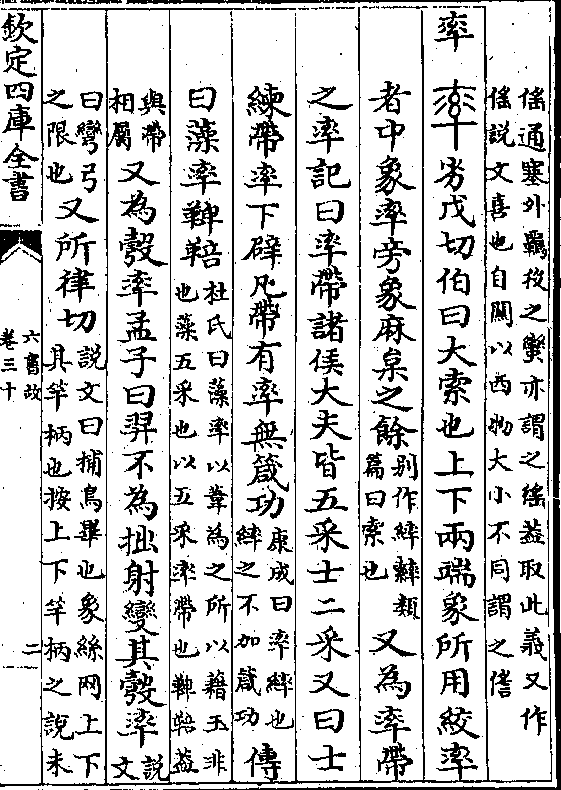 傜通塞外羈役之蠻亦謂之傜葢取此義又作
傜說文喜也自關以西物大小不同謂之㒔
率 劣戊切伯曰大索也上下兩端象所用絞率
者中象率旁象麻枲之餘别作繂䋎類篇曰索也又為率帶
之率記曰率帶諸侯大夫皆五采士二采又曰士
練帶率下辟凡帶有率無箴功康成曰率繂也繂之不加箴功傳
曰藻率鞞鞛杜氏曰藻率以韋為之所以藉玉非也藻五采也以五采率帶也鞞與葢
與帶相屬又為彀率孟子曰羿不為拙射變其彀率說文
曰彎弓之限也又所律切說文曰捕鳥畢也象絲网上下其竿柄也按上下竿柄之說未
欽定四庫全書
六書故
卷三十
二